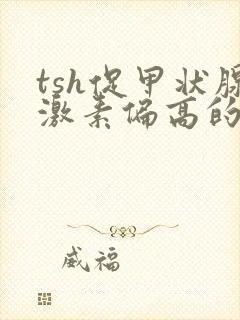 tsh促甲状腺
激素偏高的
威福